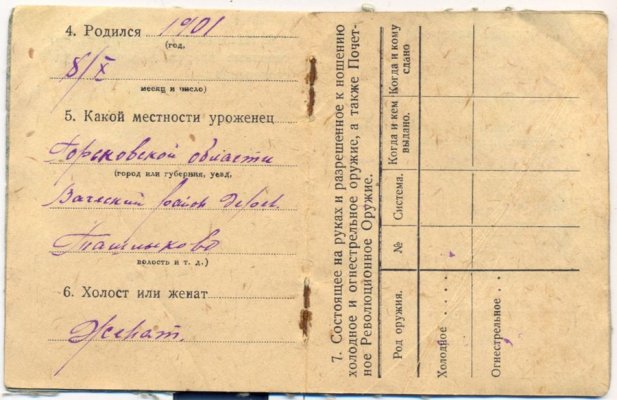 4. Родился 1901
(год,
8/X
месяц и число)
5. Какой местности уроженец
Горьковской области
(город или губерния, уезд,
Вачский район дерев.
волость и т. д.)
6. Холост или женат
Женат.
7. Состоящее на руках и разрешенное к ношению
холодное и огнестрельное оружие, а также Почет-
ное Революционное Оружие.
Род оружия.
№
Система.
Когда и кем
выдано.
Когда и кому
сдано
Холодное . . . .
Огнестрельное . .